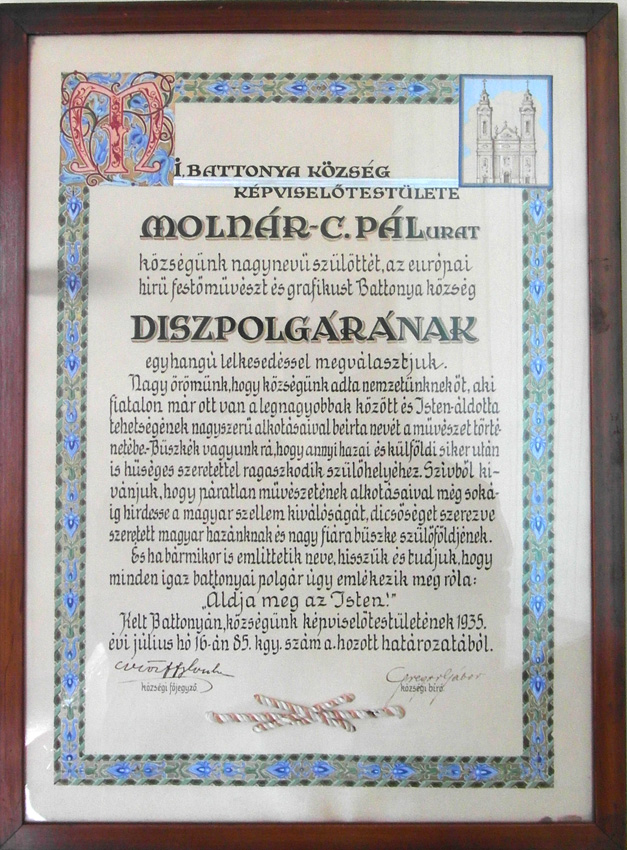 MI, BATTONYA KÖZSÉG
KÉPVISELŐTESTÜLETE
MOLNÁR-C. PÁL URAT
községünk nagynevű szülöttét, az európai
hírű festőművészt és grafikust Battonya község
DISZPOLGÁRÁNAK
egyhangú lelkesedéssel megválasztjuk.
Nagy örömünk, hogy községünk adta nemzetünknek őt, aki
fiatalon már ott van a legnagyobbak között és Isten-áldotta
tehetségének nagyszerű alkotásaival beirta nevét a művészet törté-
netébe. Büszkék vagyunk rá, hogy annyi hazai és külföldi siker után
is hűséges szeretettel ragaszkodik szülőhelyéhez. Szivből ki-
vánjuk, hogy páratlan művészetének alkotásaival még soká-
ig hirdesse a magyar szellem kiválóságát, dicsőséget szerezve
szeretett magyar hazánknak és nagy fiára büszke szülőföldjének.
És ha bármikor is emlittetik neve, hisszük és tudjuk, hogy
minden igaz battonyai polgár úgy emlékezik meg róla:
„Áldja meg az Isten!”
Kelt Battonyán, községünk képviselőtestületének 1935.
évi július hó 16-án 85. kgy. szám a. hozott határozatából.
Gábor
községi főjegyző
községi biró